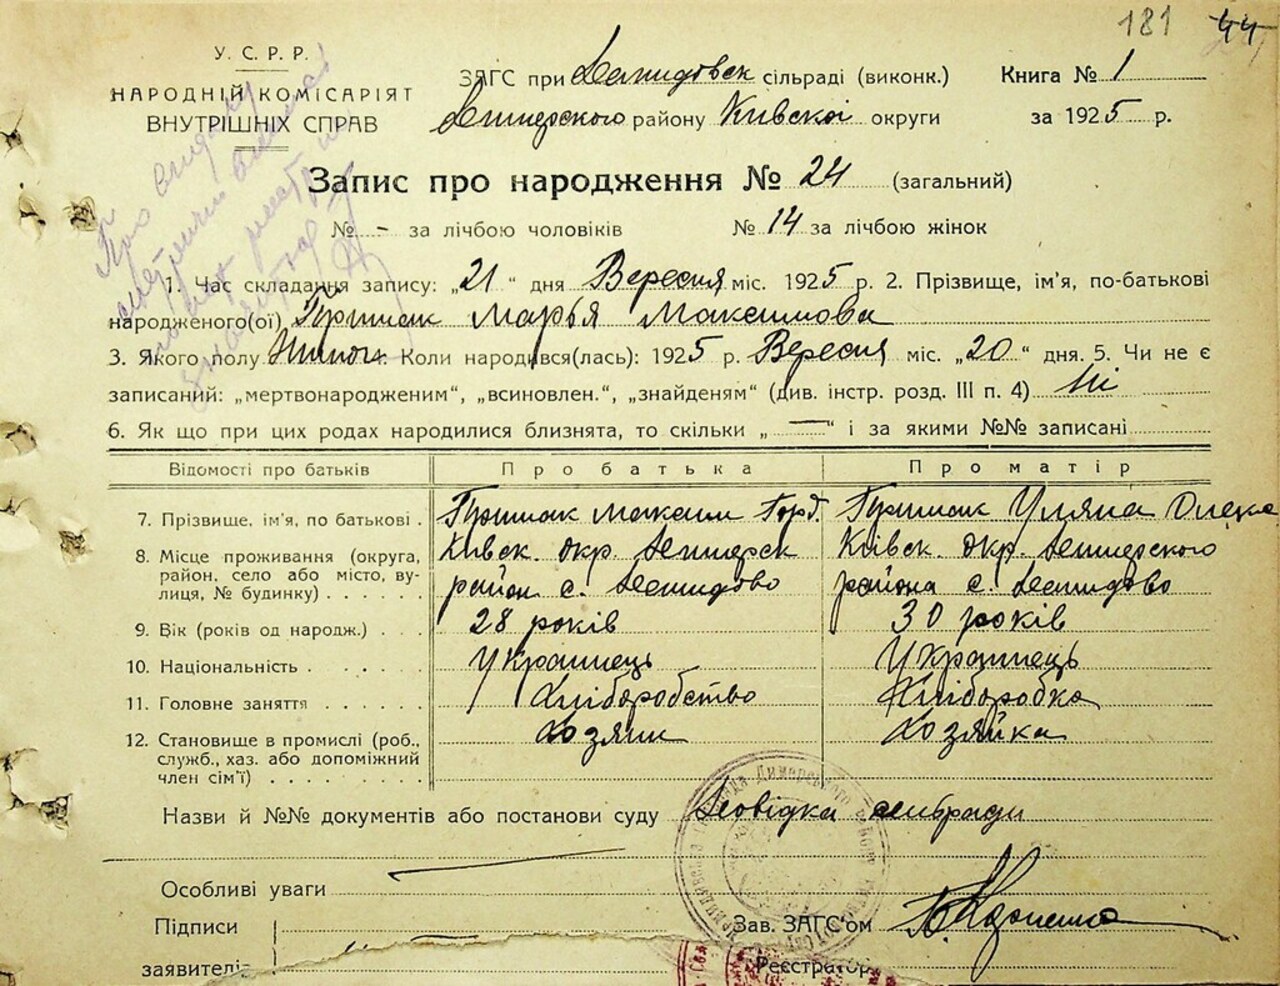 181 44
У. С. Р. Р.
НАРОДНІЙ КОМІСАРІЯТ
ВНУТРІШНІХ СПРАВ
ЗАГС при Демидовск сільраді (виконк.) Книга № 1
Димерского району Київскої округи за 1925 р.
Запис про народження № 24 (загальний)
№ - за лічбою чоловіків № 14 за лічбою жінок
1. Час складання запису: „21“ дня Вересня міс. 1925 р. 2. Прізвище, ім'я, по-батькові
народженого(ої) Марья Максимова
3. Якого полу Жиноч. Коли народився(лась): 1925 р. Вересня міс. „20“ дня. 5. Чи не є
записаний: „мертвонародженим“, „всиновлен.“, „знайденям“ (див. інстр. розд. III п. 4) Ні
6. Як що при цих родах народилися близнята, то скільки „ — “ і за якими №№ записані
Відомості про батьків Про батька Про матір
7. Прізвище, ім'я, по батькові . Максим Горд. Уляна
8. Місце проживання (округа, Київск. окр. Димерск Київск. окр. Димерского
район, село або місто, ву- район с. Демидово района с. Демидово
лиця, № будинку) . . . . .
9. Вік (років од народж.) . . . 28 років 30 років
10. Національність . . . . . Українець Українець
11. Головне заняття . . . . . . Хліборобство Хліборобка
12. Становище в промислі (роб., Хозяин Хозяйка
служб., хаз. або допоміжний
член сім'ї) . . . . . . . .
Назви й №№ документів або постанови суду Довідка сільради
Особливі уваги
Підписи Зав. ЗАГС'ом
заявителів Реєстратор